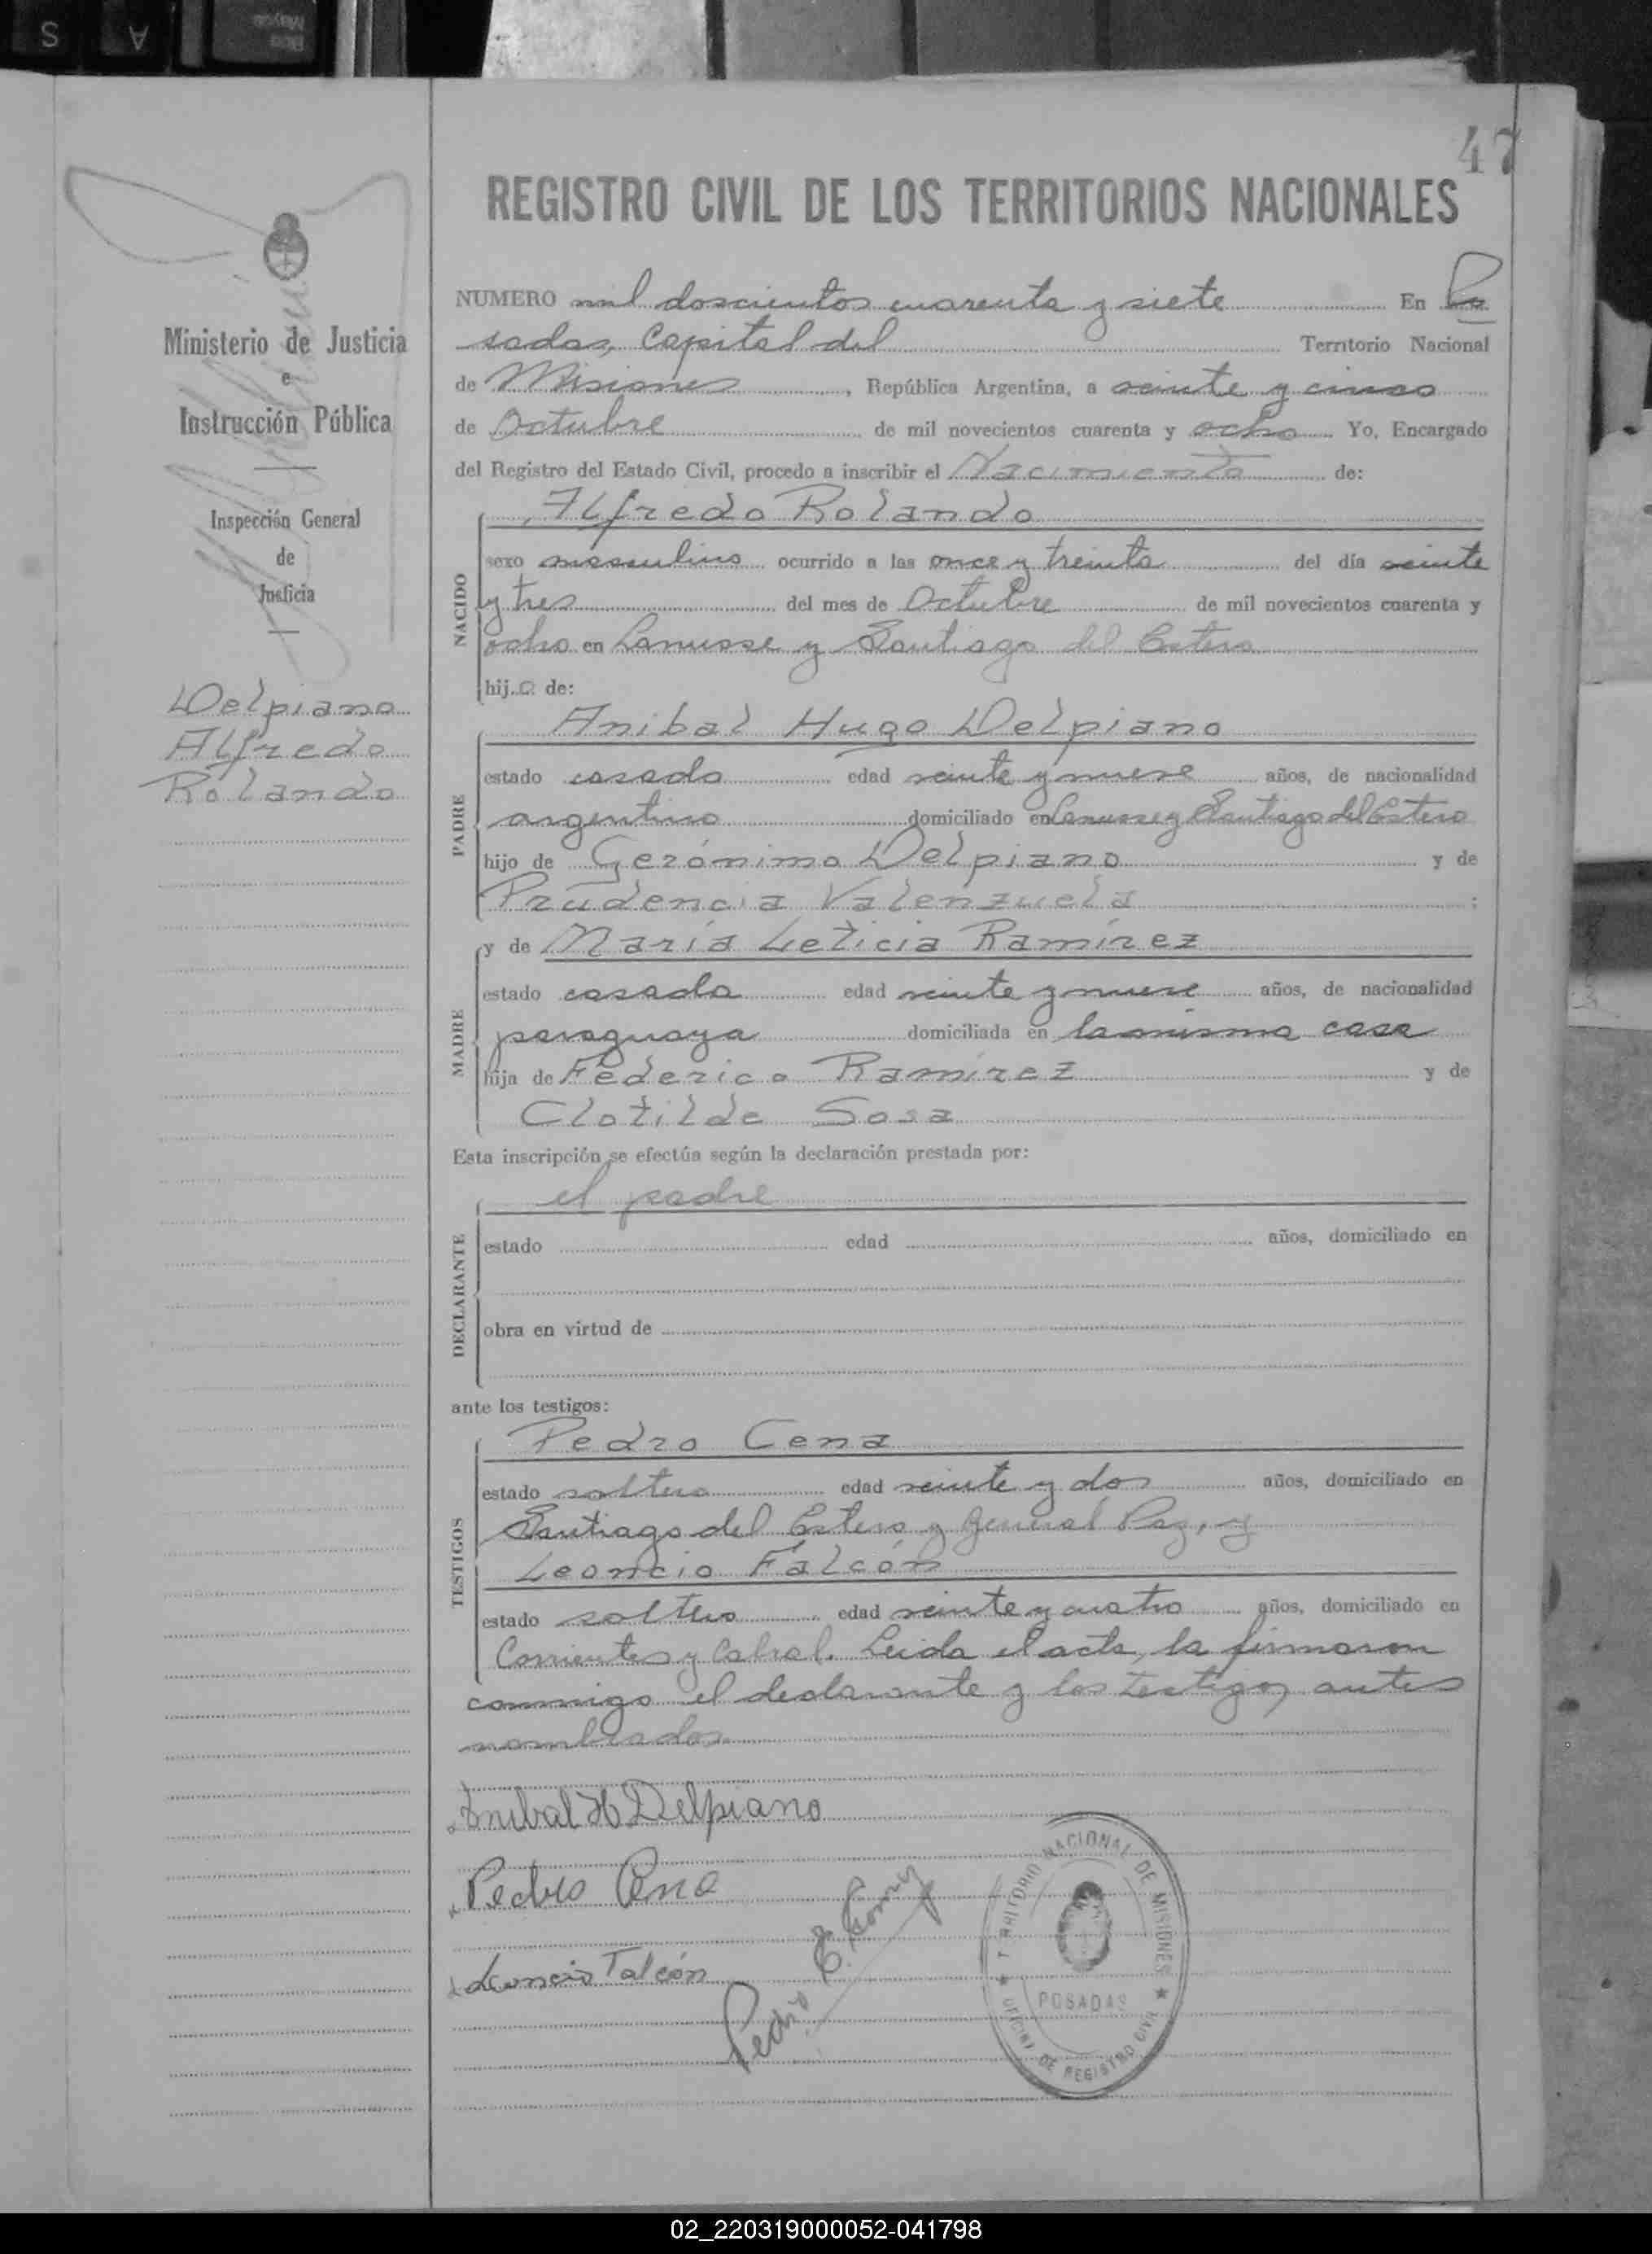 S A Bloq Mayús
47
REGISTRO CIVIL DE LOS TERRITORIOS NACIONALES
Ministerio de Justicia
e
Instrucción Pública
Inspección General
de
Justicia
Delpiano
Alfredo
Rolando
NUMERO mil doscientos cuarenta y siete En Po
sadas, Capital del Territorio Nacional
de Misiones, República Argentina, a veinte y cinco
de Octubre de mil novecientos cuarenta y ocho Yo, Encargado
del Registro del Estado Civil, procedo a inscribir el Nacimiento de:
NACIDO
Alfredo Rolando
sexo masculino ocurrido a las once y treinta del día veinte
y tres del mes de Octubre de mil novecientos cuarenta y
ocho en Lanusse y Santiago del Estero
hijo de:
PADRE
Anibal Hugo Delpiano
estado casado edad veinte y nueve años, de nacionalidad
argentino domiciliado en Lanusse y Santiago del Estero
hijo de Gerónimo Delpiano y de
Prudencia Valenzuela ;
MADRE
y de María Leticia Ramírez
estado casada edad veinte y nueve años, de nacionalidad
paraguaya domiciliada en la misma casa
hija de Federico Ramírez y de
Clotilde Sosa
Esta inscripción se efectúa según la declaración prestada por:
DECLARANTE
el padre
estado edad años, domiciliado en
obra en virtud de
ante los testigos:
TESTIGOS
Pedro Cena
estado soltero edad veinte y dos años, domiciliado en
Santiago del Estero y General Paz, y
Leoncio Falcón
estado soltero edad veinte y cuatro años, domiciliado en
Corrientes y Cabral. Leida el acta, la firmaron
conmigo el declarante y los testigos antes
nombrados.
Anibal H Delpiano
Pedro Cena
Leoncio Falcón
Pedro E.
TERRITORIO NACIONAL DE MISIONES
POSADAS
OFICINA DE REGISTRO CIVIL
02_220319000052-041798